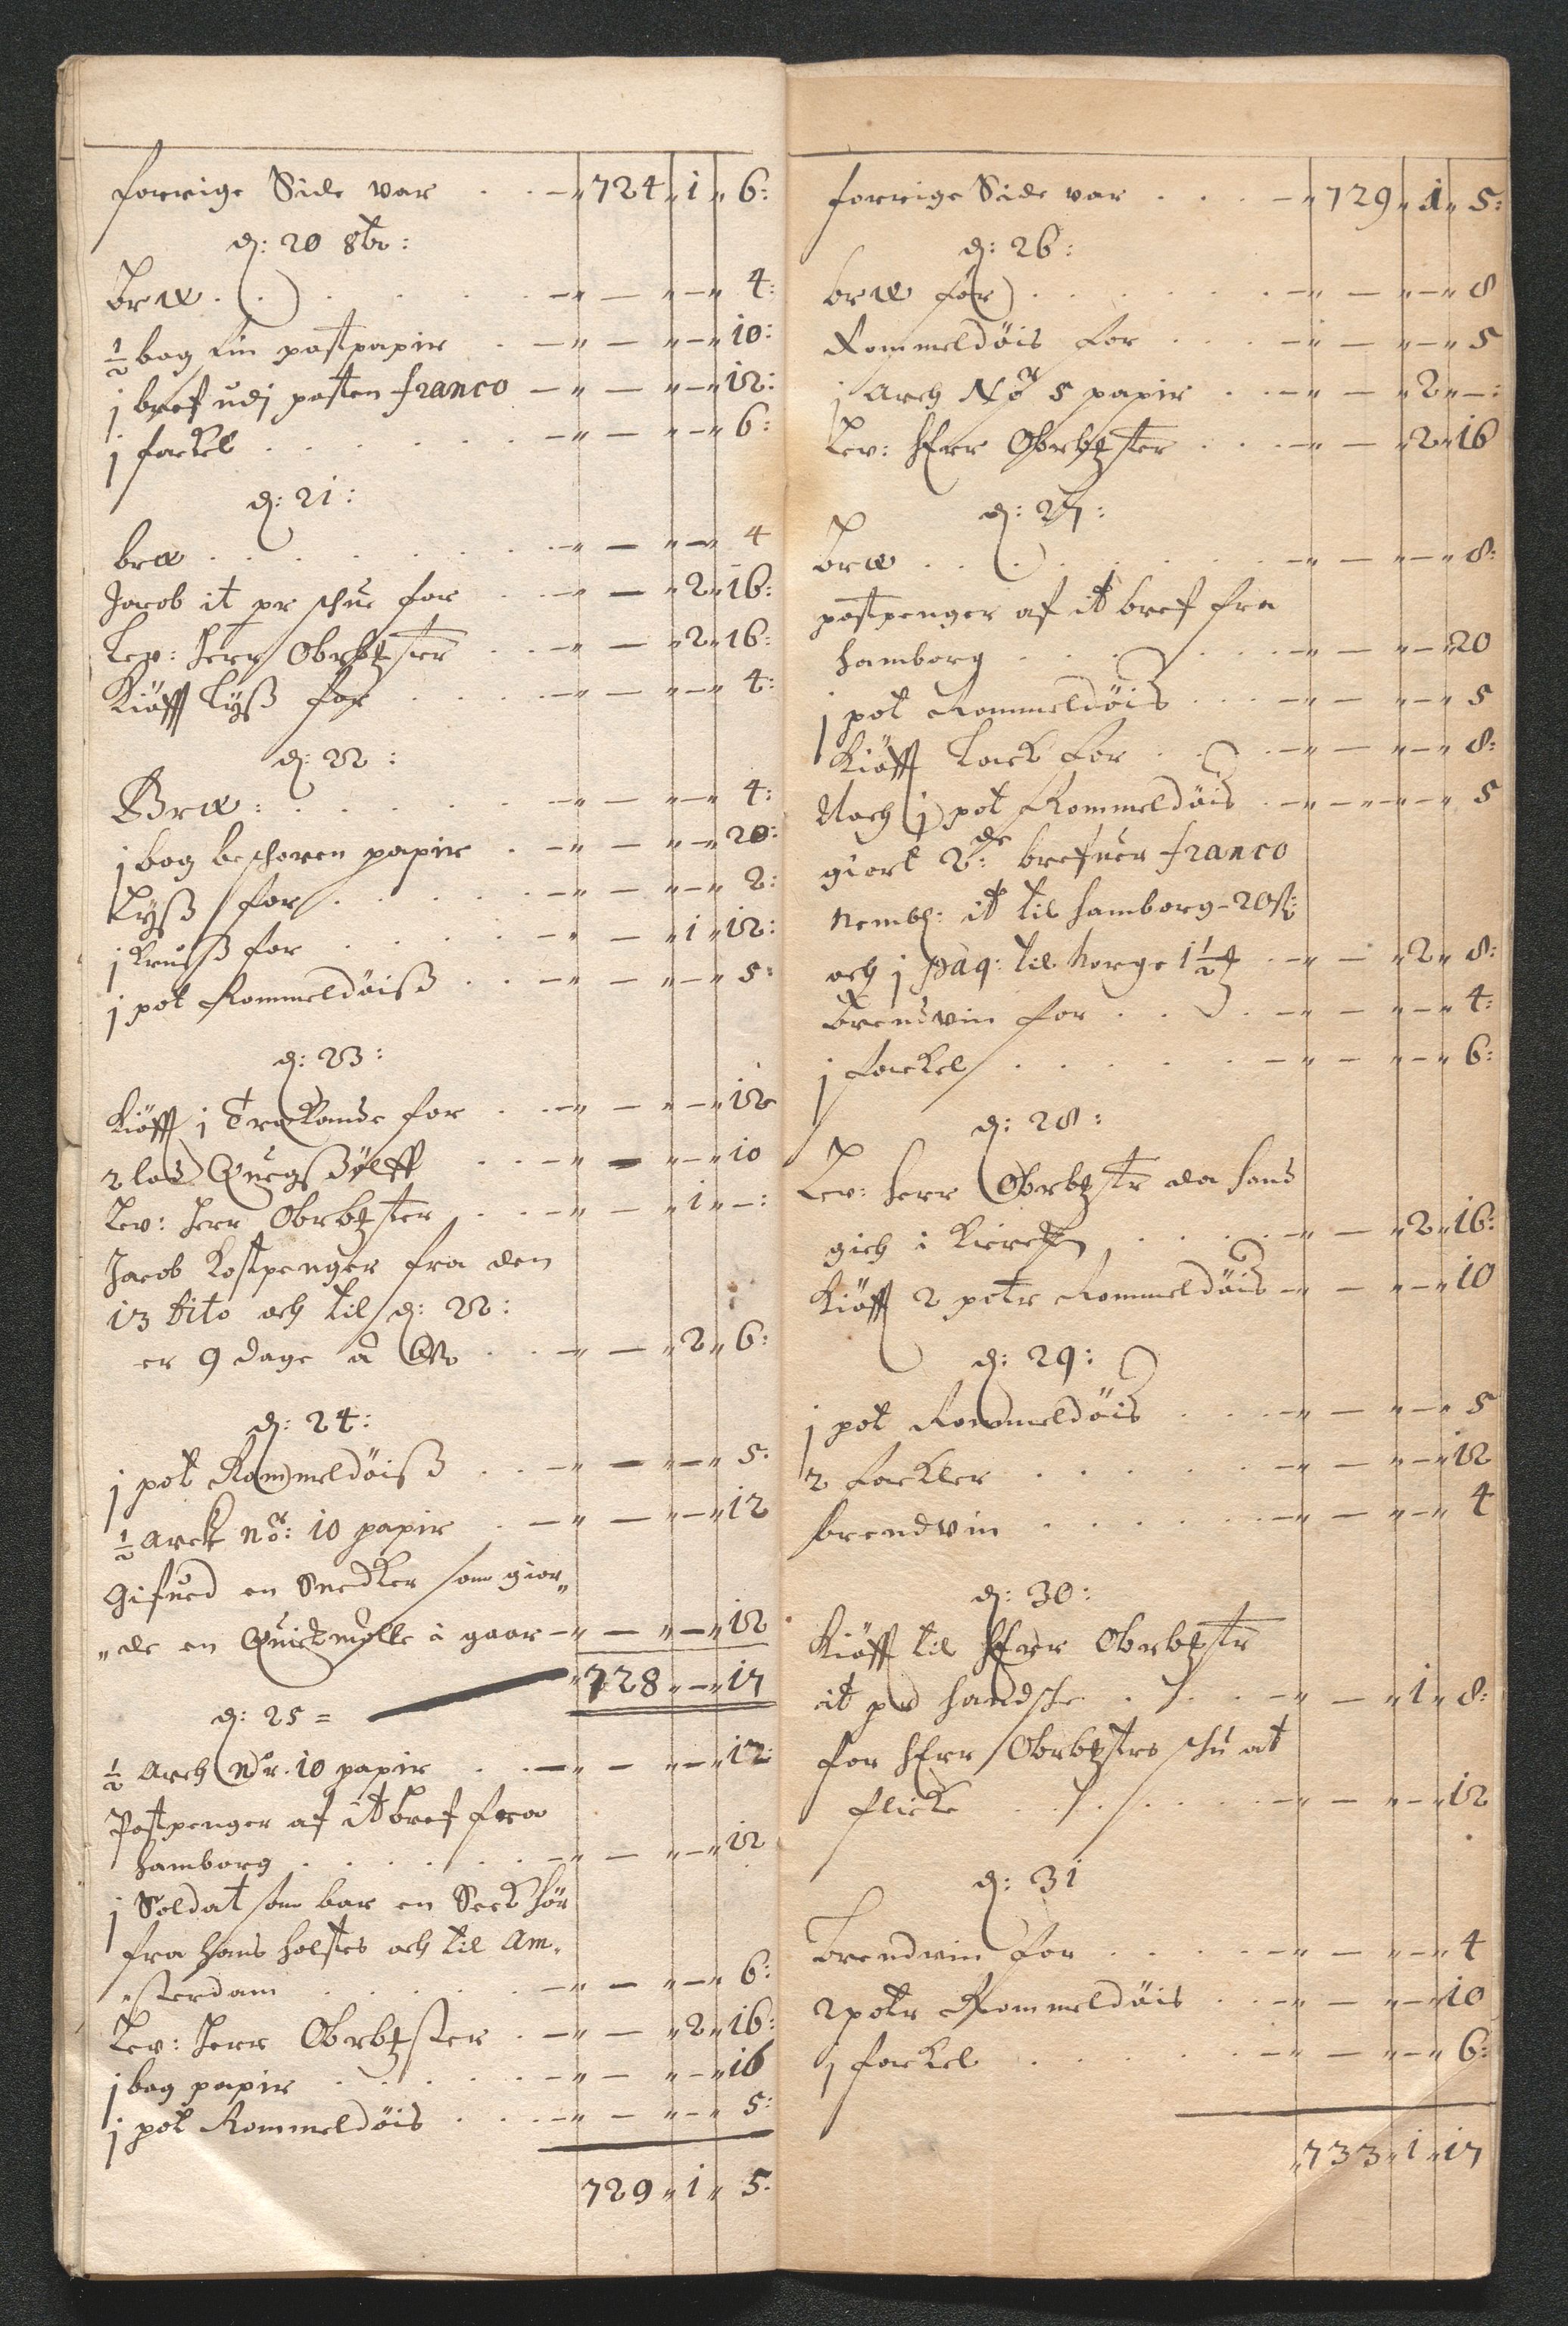 forrige Side var . . — " 724 " 1 " 6:
d: 20 8br:
brø . . . . . . — " — " — " 4:
½ bog fin postpapir . — " — " — " 10:
j bref udj posten franco — " — " — " 12:
j fackel . . . . . — " — " — " 6:
d: 21:
brø . . . . . . — " — " — " 4
Jacob it pr schue for . . — " — " 2 " 16:
Lev: Herr Obrbtzster . . — " — " 2 " 16:
Kiöfft Lyß for . . . . — " — " — " 4:
d: 22:
Brø: . . . . . — " — " — " 4:
j bog beschoren papir . — " — " — " 20:
Lyß for . . . . . — " — " — " 2:
j Kruuß for . . . . — " — " 1 " 12:
j pot Rommeldöiß . . — " — " — " 5:
d: 23:
Kiöfft j Træckande for . . — " — " — " 12
2 lod Quegßölff . . — " — " — " 10
Lev: Herr Obrbtzster . . — " — " 1 " —:
Jacob Kostpenger fra den
13 dito och til d: 22:
er 9 dage à 6 . . — " — " 2 " 6:
d: 24:
j pot Rommeldöiß . . — " — " — " 5:
½ arck Nor: 10 papir . — " — " — " 12
Gifued en Snedker som gior„
„de en Quickmölle i gaar — " — " — " 12
728 " — " 17
d: 25 =
½ Arch Nor. 10 papir . . — " — " — " 12:
Postpenger af it bref fra
Hamborg . . . . . — " — " — " 12
j Soldat som bar en Seck hör
fra Hans Holstes och til Am„
„sterdam . . . . . — " — " — " 6:
Lev: Herr Obrbtzster . — " — " 2 " 16:
j bog papir . . . . — " — " — " 16
j pot Rommeldöis . . . — " — " — " 5:
729 " 1 " 5:
forrige Side var . . . — " 729 " 1 " 5:
d: 26:
brø for . . . . . . — " — " — " 8
Rommeldöis for . . . — " — " — " 5
j Arch Nor 5 papir . . — " — " 2 " —:
Lev: Herr Obrbtzster . . . — " — " 2 " 16
d: 27:
brø . . . . . . . — " — " — " 8:
postpenger af it bref fra
Hamborg . . . . . . — " — " — " 20
j pot Rommeldöis . . . — " — " — " 5
Kiöfft Lack for . . . . — " — " — " 8:
Noch j pot Rommeldöis . — " — " — " 5
giort 2de: brefuer franco
Nembl: it til Hamborg - 20 ß:
och j paq: til Norge 1½ . — " — " 2 " 8:
brendvin for . . . . — " — " — " 4:
j fackel . . . . . — " — " — " 6:
d: 28:
Lev: Herr Obrbtzstr da hand
gich i Kircken . . . . — " — " 2 " 16:
Kiöfft 2 potr Rommeldöis — " — " — " 10
d: 29:
j pot Rommeldöis . . . — " — " — " 5
2 fackler . . . . . — " — " — " 12
brendvin . . . . . . — " — " — " 4
d: 30:
Kiöfft til Herr Obrbtzstr
it pr handsche . . . . — " — " 1 " 8:
for Herr Obrbtzstrs schu at
flicke . . . . . . — " — " — " 12
d: 31
brendvin for . . . . — " — " — " 4
2 potr Rommeldöis . . — " — " — " 10
j fackel . . . . . — " — " — " 6:
733 " 1 " 17